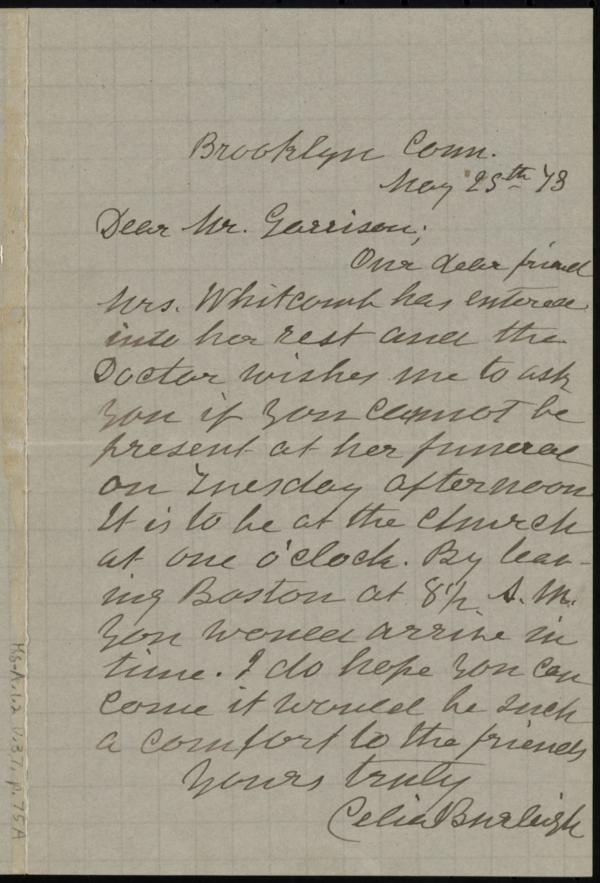 Brooklyn Conn.
May 25th 73
Dear Mr. Garrison;
Our dear friend
Mrs. Whitcomb has entered
into her rest and the
Doctor wishes me to ask
you if you cannot be
present at her funeral
on Tuesday afternoon
It is to be at the church
at one o'clock. By leav-
ing Boston at 8½ A.M.
you would arrive in
time. I do hope you can
come it would be such
a comfort to the friends
Yours truly
Celia Burleigh
Ms.A.1.2 v.37, p.75A